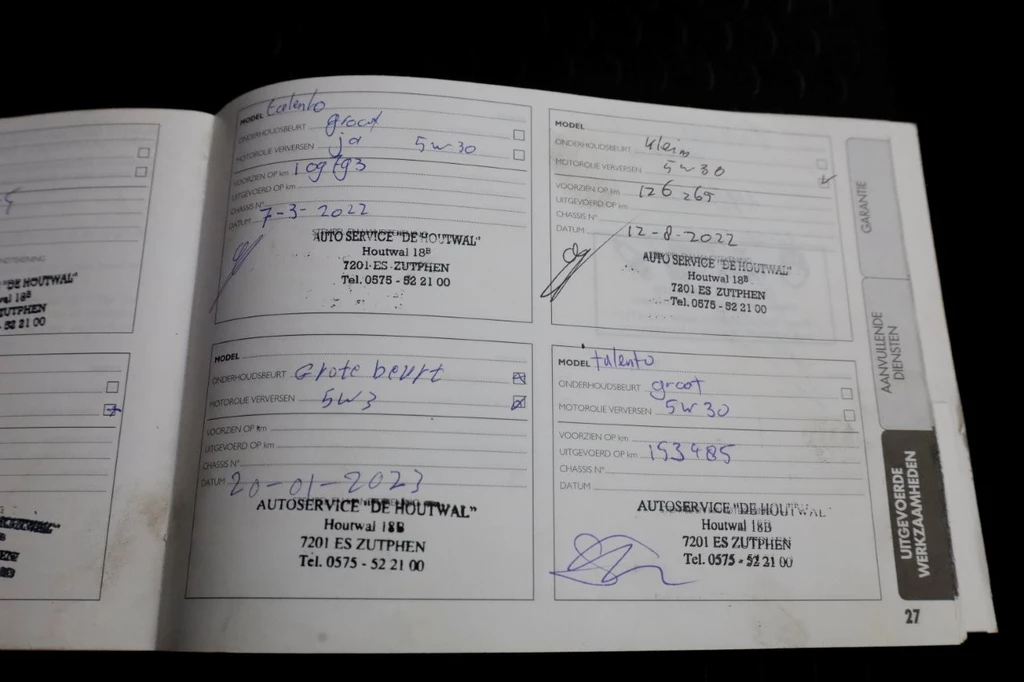 MODEL talento
ONDERHOUDSBEURT groot
MOTOROLIE VERVERSEN ja 5w30
VOORZIEN OP km
UITGEVOERD OP km
CHASSIS N°
DATUM 7-3-2022
AUTO SERVICE "DE HOUTWAL"
Houtwal 18B
7201 ES ZUTPHEN
Tel. 0575 - 52 21 00
MODEL
ONDERHOUDSBEURT klein
MOTOROLIE VERVERSEN 5w30
VOORZIEN OP km 126265
UITGEVOERD OP km
CHASSIS N°
DATUM 12-8-2022
AUTO SERVICE "DE HOUTWAL"
Houtwal 18B
7201 ES ZUTPHEN
Tel. 0575 - 52 21 00
MODEL
ONDERHOUDSBEURT Grote beurt
MOTOROLIE VERVERSEN 5w3
VOORZIEN OP km
UITGEVOERD OP km
CHASSIS N°
DATUM 20-01-2023
AUTOSERVICE "DE HOUTWAL"
Houtwal 18B
7201 ES ZUTPHEN
Tel. 0575 - 52 21 00
MODEL talento
ONDERHOUDSBEURT groot
MOTOROLIE VERVERSEN 5w30
VOORZIEN OP km
UITGEVOERD OP km 153485
CHASSIS N°
DATUM
AUTOSERVICE "DE HOUTWAL"
Houtwal 18B
7201 ES ZUTPHEN
Tel. 0575 - 52 21 00
"DE HOUTWAL"
18B
ZUTPHEN
52 21 00
GARANTIE
AANVULLENDE
DIENSTEN
UITGEVOERDE
WERKZAAMHEDEN
27